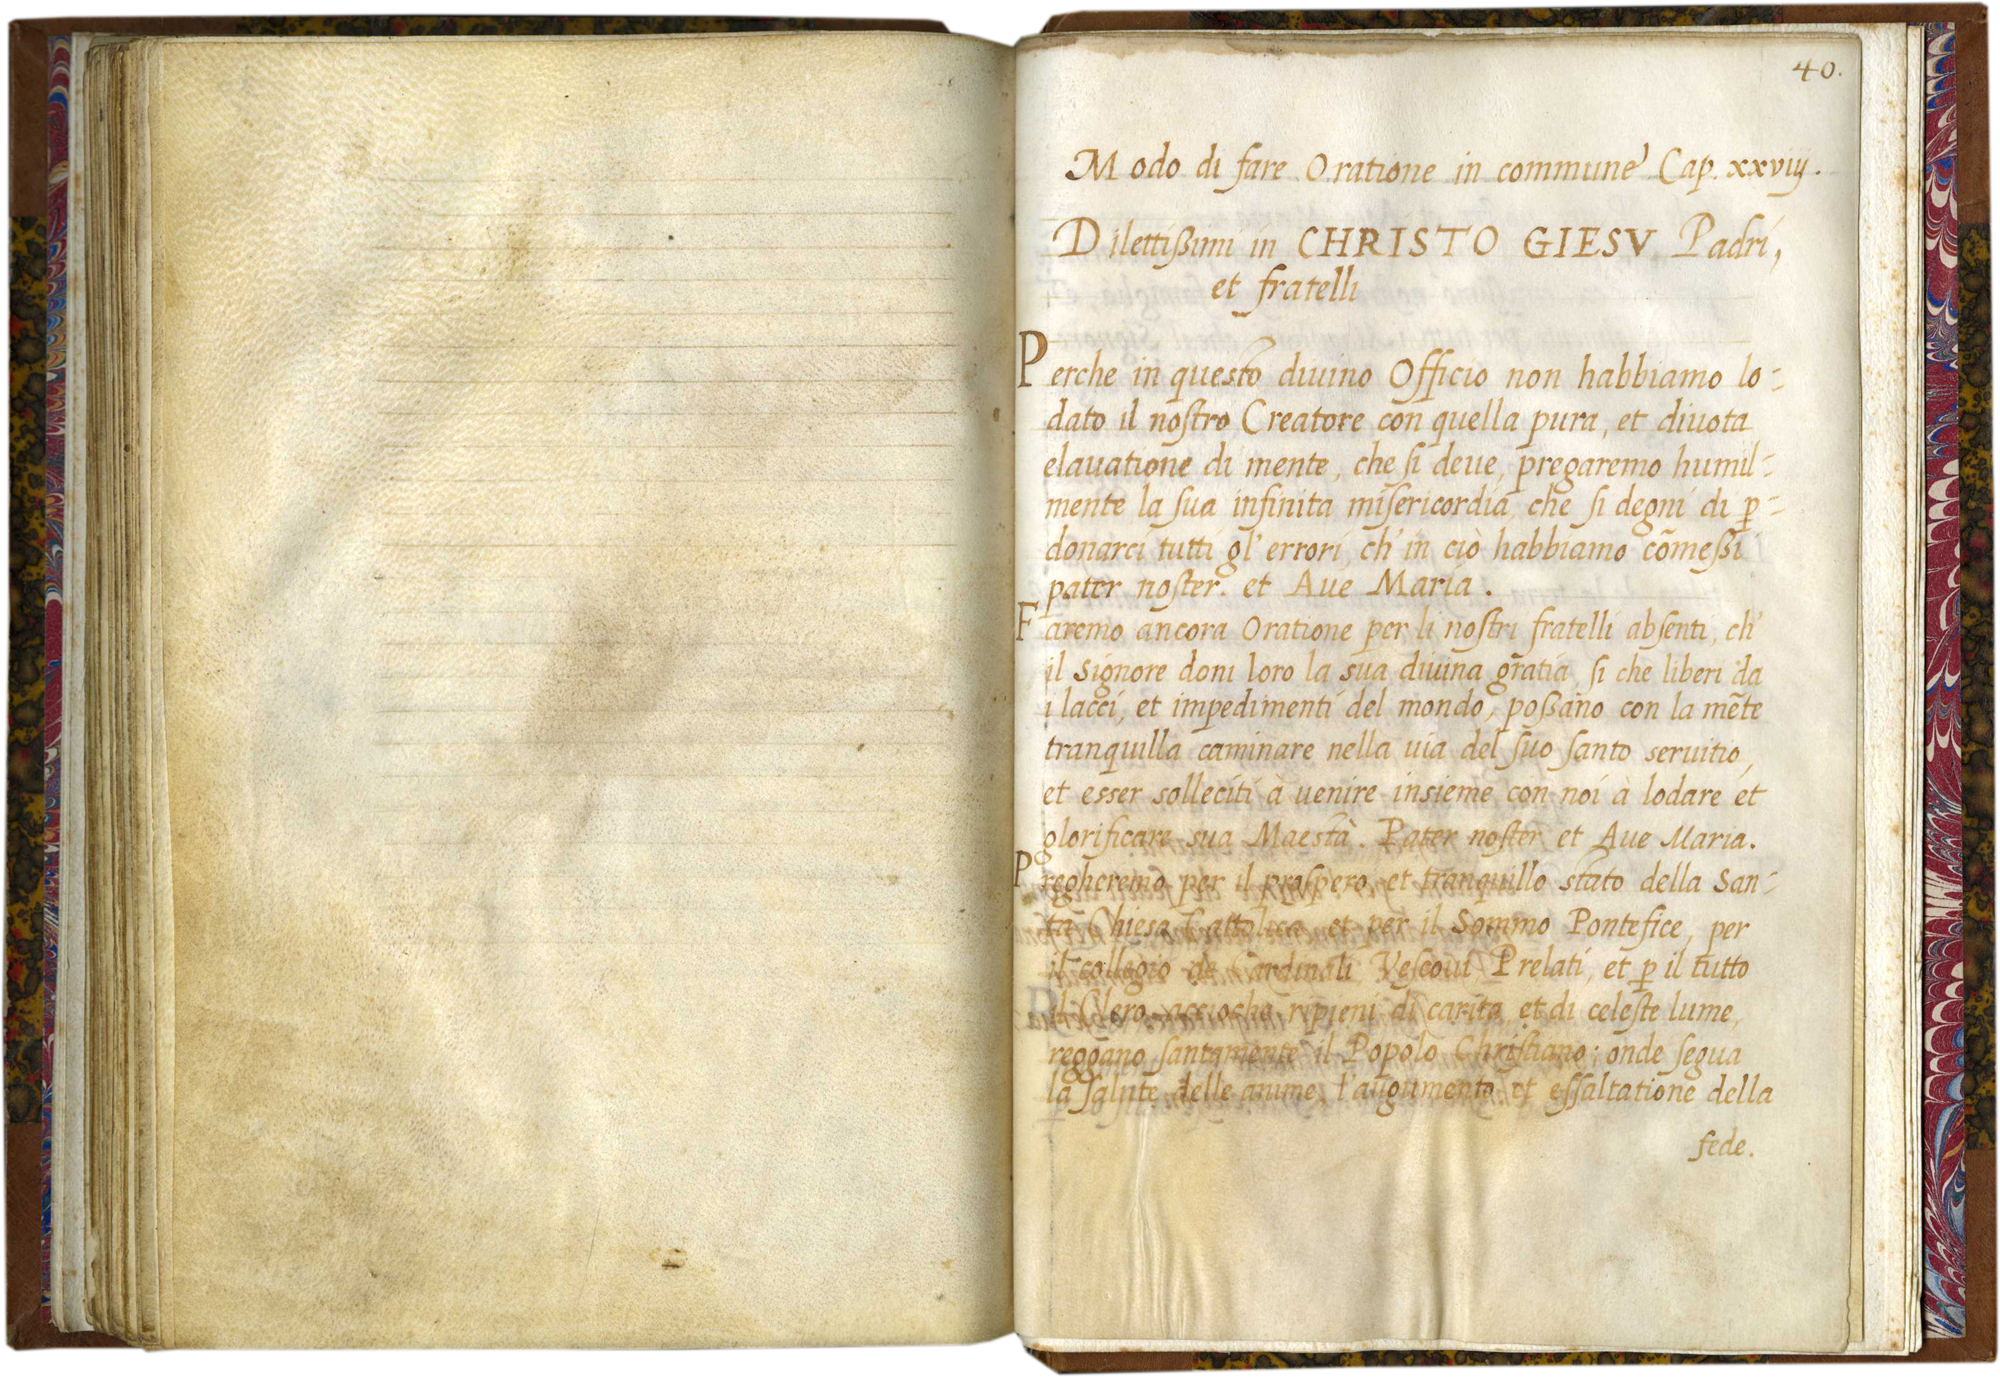 40.
Modo di fare Oratione in commune Cap. xxviij.
Dilettißimi in CHRISTO GIESV Padri,
et fratelli
Perche in questo diuino Officio non habbiamo lo-
dato il noſtro Creatore con quella pura, et diuota
elauatione di mente, che ſi deue, pregaremo humil-
mente la ſua infinita miſericordia, che ſi degni di p̱-
donarci tutti gl' errori, ch' in ciò habbiamo cōmeßi
pater noſter. et Aue Maria.
Faremo ancora Oratione per li noſtri fratelli abſenti, ch'
il Signore doni loro la sua diuina gratia, ſi che liberi da
i lacci, et impedimenti del mondo, poßano con la mēte
tranquilla caminare nella uia del ſuo ſanto seruitio,
et esser solleciti à uenire insieme con noi à lodare et
glorificare sua Maestà. Pater noſter et Aue Maria.
Pregheremo per il proſpero, et tranquillo stato della San-
ta Chiesa Cattolica et per il Sommo Pontefice, per
il collegio de Cardinali, Veſcoui Prelati, et p̱ il tutto
il Clero, accioche ripieni di carita, et di celeſte lume,
reggano ſantamente il Popolo Chriſtiano; onde ſegua
la ſalute delle anime, l'augumento, et eſſaltatione della
fede.